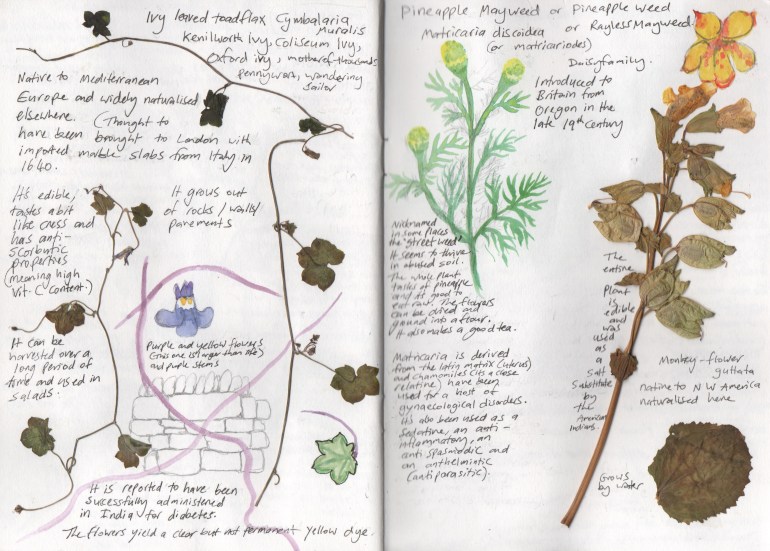 Ivy leaved toadflax Cymbalaria
Muralis
Kenilworth Ivy, Coliseum Ivy,
Oxford ivy, mother of thousands
pennywort, wandering
sailor
Native to Mediterranean
Europe and widely naturalised
elsewhere. (Thought to
have been brought to London with
imported marble slabs from Italy in
1640.
It's edible,
tastes a bit
like cress and
has anti-
scorbutic
properties
(meaning high
Vit. C content.)
It grows out
of rocks/walls/
pavements
It can be
harvested over a
long period of
time and used in
salads.
Purple and yellow flowers
(this one is larger than life)
and purple stems
It is reported to have been
sucessfully administered
in India for diabetes.
The flowers yield a clear but not permanent yellow dye.
Pineapple Mayweed or Pineapple weed
or Rayless Mayweed
Matricaria discoidea
(or matricariodes)
Daisy family.
Introduced to
Britain from
Oregon in the
late 19th Century
Nicknamed
in some places
the "street weed"
It seems to thrive
in abused soil.
The whole plant
tastes of pineapple
and is good to
eat raw. The flowers
can be dried and
ground into a flour.
It also makes a good tea.
Matricaria is derived
from the latin matrix (uterus)
and chamomiles (its a close
relative) have been
used for a host of
gynaecological disorders.
It's also been used as a
sedative, an anti-
inflammatory, an
anti spasmodic and
an anthelmintic
(antiparasitic).
The
entire
Plant
is
edible
and
was
used
as
a
salt
substitute
by
The
American
Indians.
Monkey-flower
guttata
native to N W America
naturalised here
Grows
by water